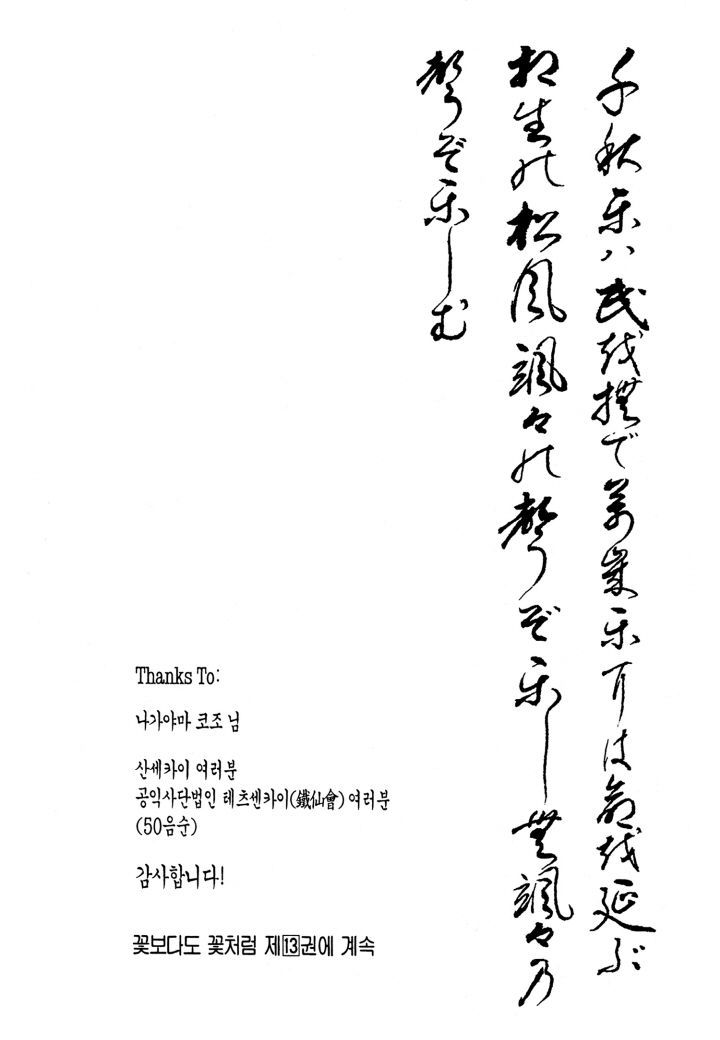 千秋楽ハ民を撫で萬歳楽には命を延ぶ
相生の松風颯々の聲ぞ楽しむ颯々乃
聲ぞ楽しむ
Thanks To:
나가야마 코조 님
산세카이 여러분
공익사단법인 테츠센카이(鐵仙會) 여러분
(50음순)
감사합니다!
꽃보다도 꽃처럼 제13권에 계속